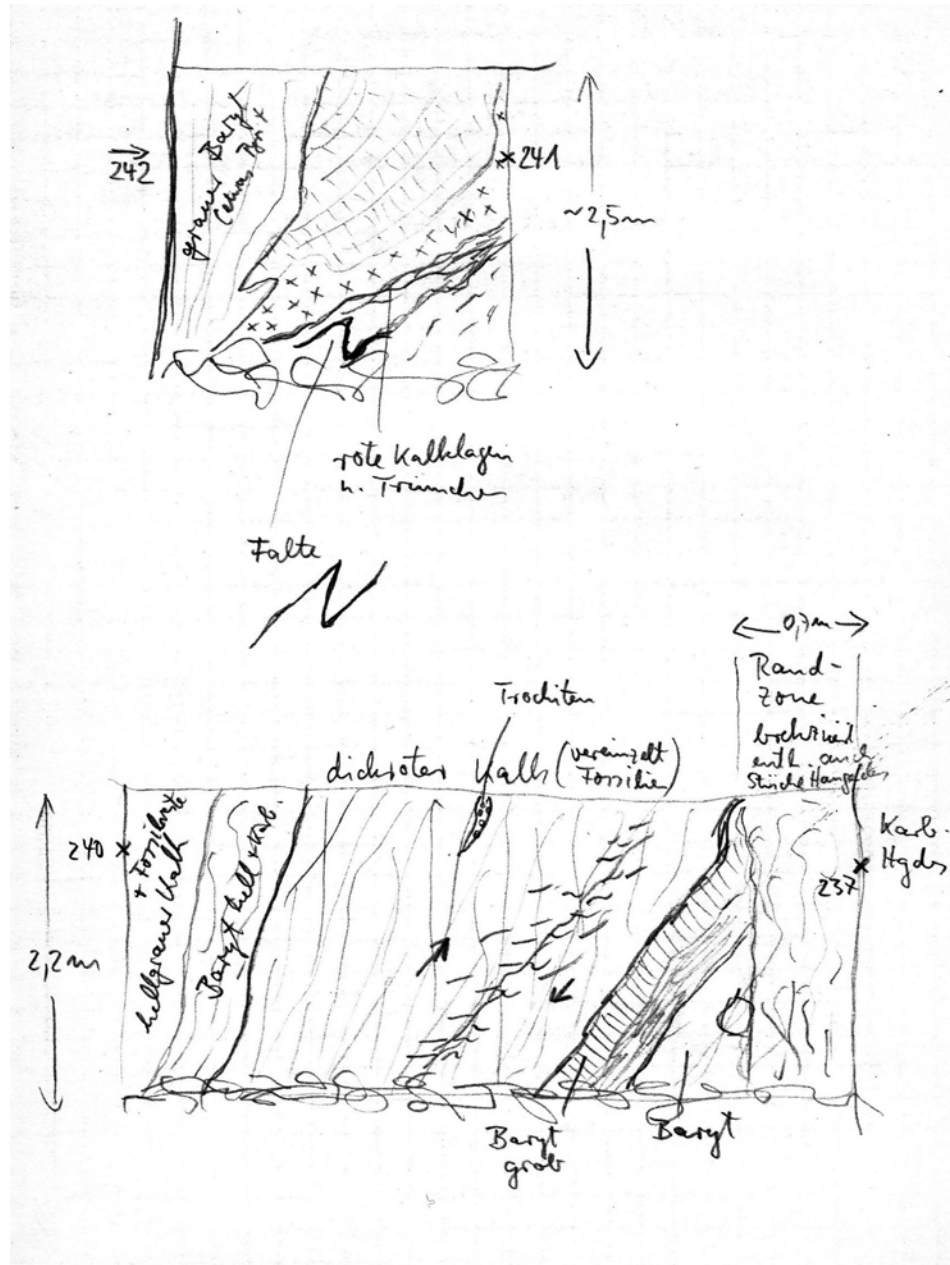 242
grauer Baryt
(etwas Pyrit
241
~2,5m
rote Kalklagen
u. Trümchen
Falte
0,7m
Rand-
zone
enth. auch
Trochiten
dickroter Kalk (vereinzelt
Fossilien)
240
+ Fossilreste
hellgrauer Kalk
Baryt hell + Kalk
2,2m
Karb
Hgds
237
Baryt
grob
Baryt